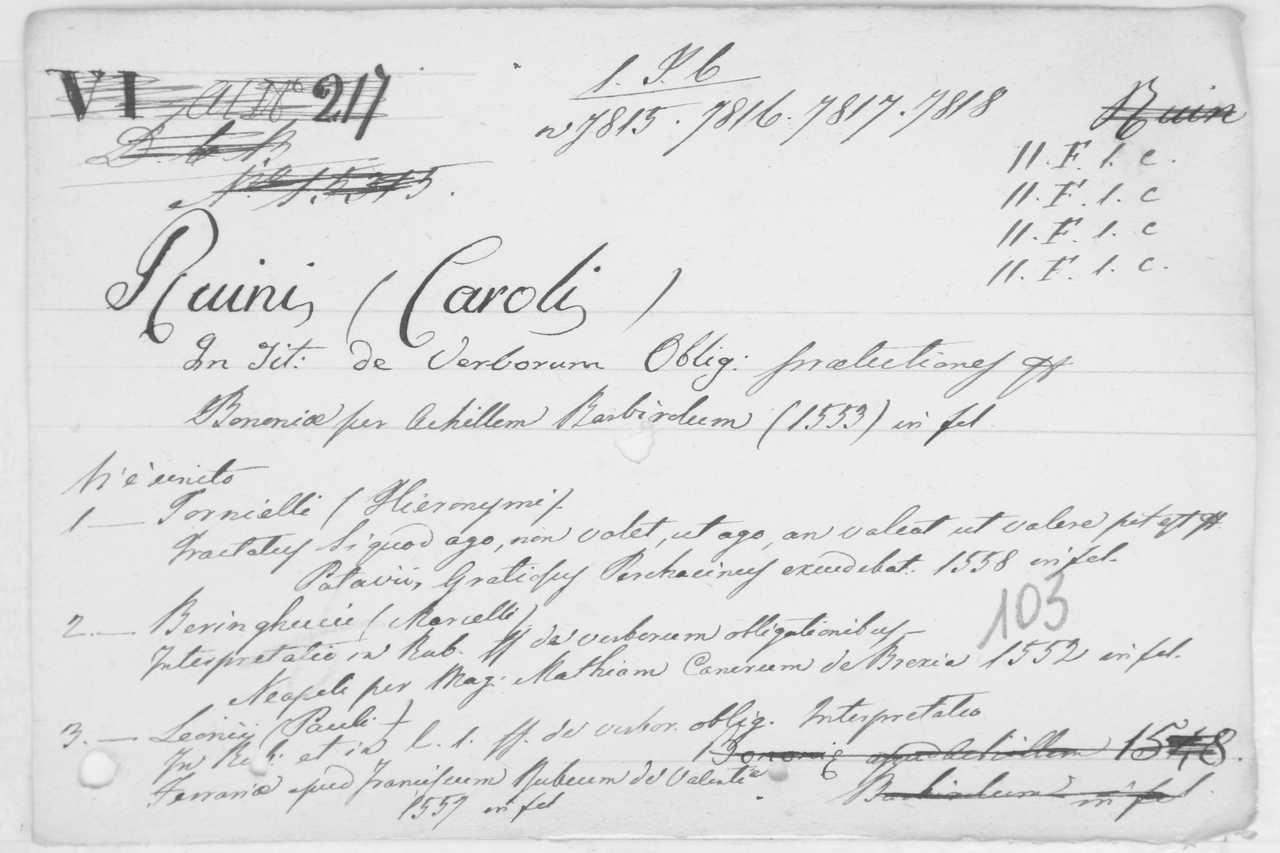 VI 217
1. P. 6
n 7815. 7816. 7817. 7818
Ruin
II. F. 1. c.
II. F. 1. c
II. F. 1. c
II. F. 1. c.
Nro 15345.
Ruini (Caroli)
In Tit: de Verborum Oblig: prælectiones
Bononiæ per Achillem Barbirolum (1553) in fol
V'è unito
1 — Tornielli (Hieronymi)
Tractatus Si quod ago, non valet, ut ago, an valeat ut valere pot est
Patavii, Gratiosus Perchacinus excudebat. 1558 in fol.
103
2. — Beringhucii (Marcelli)
Interpretatio in Rub. ff de verborum obligationibus
Neapoli per Mag: Mathiam Cancrum de Brexia 1552 in fol.
3. — Leonii (Pauli)
In Rub: et in l. 1. ff. de verbor. oblig. Interpretatio
Bononiæ apud Achillem 1548.
Ferrariæ apud Franciscum Rubeum de Valentia
Barbirolum in fol.
1557 in fol